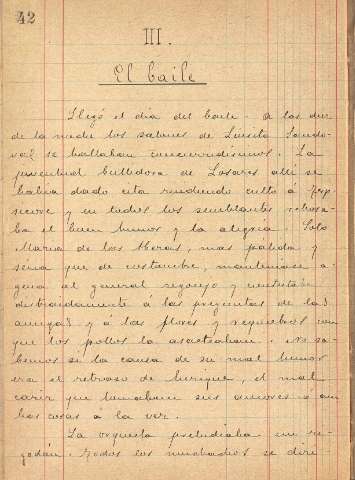 42
III.
El baile
Llegó el día del baile. A las diez
de la noche los salones de Luisito Sando-
val se hallaban concurridísimos. La
juventud bulliciosa de Losares allí se
había dado cita rindiendo culto á Terp-
sícore y en todos los semblantes rebosa-
ba el buen humor y la alegría. Solo
María de las Heras, más pálida y
seria que de costumbre, manteníase a-
gena al general regocijo y contestaba
desabridamente á las preguntas de las
amigas y á las flores y requiebros con
que los pollos la asaeteaban. No sa-
bemos si la causa de su mal humor
era el retraso de Enrique, el mal
cariz que tomaban sus amores ó am-
bas cosas á la vez.
La orquesta preludiaba un ri-
godón. Todos los muchachos se diri-